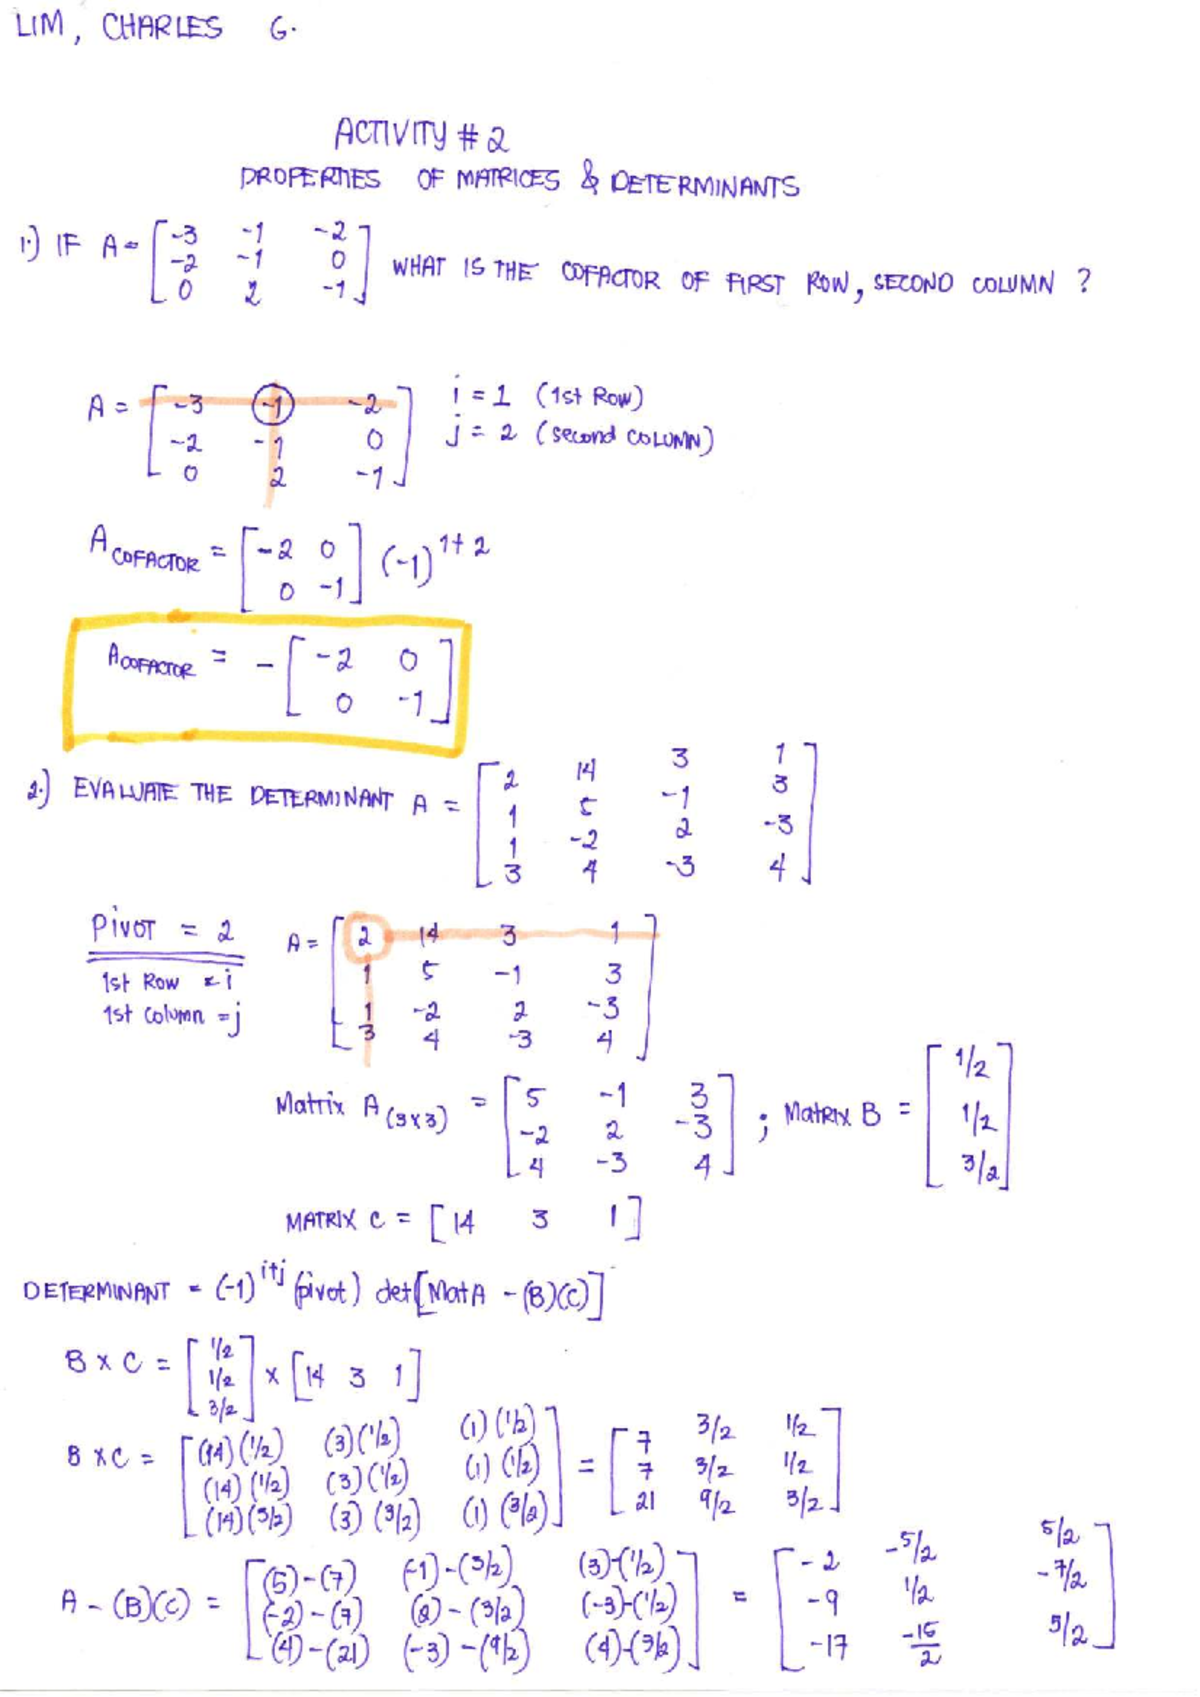 LIM, CHARLES G.
ACTIVITY # 2
PROPERTIES OF MATRICES & DETERMINANTS
1.) IF A = [-3 -1 -2
-2 -1 0
0 2 -1] WHAT IS THE COFACTOR OF FIRST ROW, SECOND COLUMN ?
A = [-3 -1 -2
-2 -1 0
0 2 -1]
i = 1 (1st Row)
j = 2 (second COLUMN)
A COFACTOR = [-2 0
0 -1] (-1)^1+2
A COFACTOR = - [-2 0
0 -1]
2.) EVALUATE THE DETERMINANT A = [2 14 3 1
1 5 -1 3
1 -2 2 -3
3 4 -3 4]
Pivot = 2
1st Row = i
1st column = j
A = [2 14 3 1
1 5 -1 3
1 -2 2 -3
3 4 -3 4]
Matrix A (3x3) = [5 -1 3
-2 2 -3
4 -3 4] ; Matrix B = [1/2
1/2
3/2]
MATRIX C = [14 3 1]
DETERMINANT = (-1)^i+j (pivot) det[Mat A - (B)(C)]
B x C = [1/2
1/2
3/2] x [14 3 1]
B x C = [(14)(1/2) (3)(1/2) (1)(1/2)
(14)(1/2) (3)(1/2) (1)(1/2)
(14)(3/2) (3)(3/2) (1)(3/2)] = [7 3/2 1/2
7 3/2 1/2
21 9/2 3/2]
A - (B)(C) = [(5)-(7) (-1)-(3/2) (3)-(1/2)
(-2)-(7) (2)-(3/2) (-3)-(1/2)
(4)-(21) (-3)-(9/2) (4)-(3/2)] = [-2 -5/2 5/2
-9 1/2 -7/2
-17 -15/2 5/2]